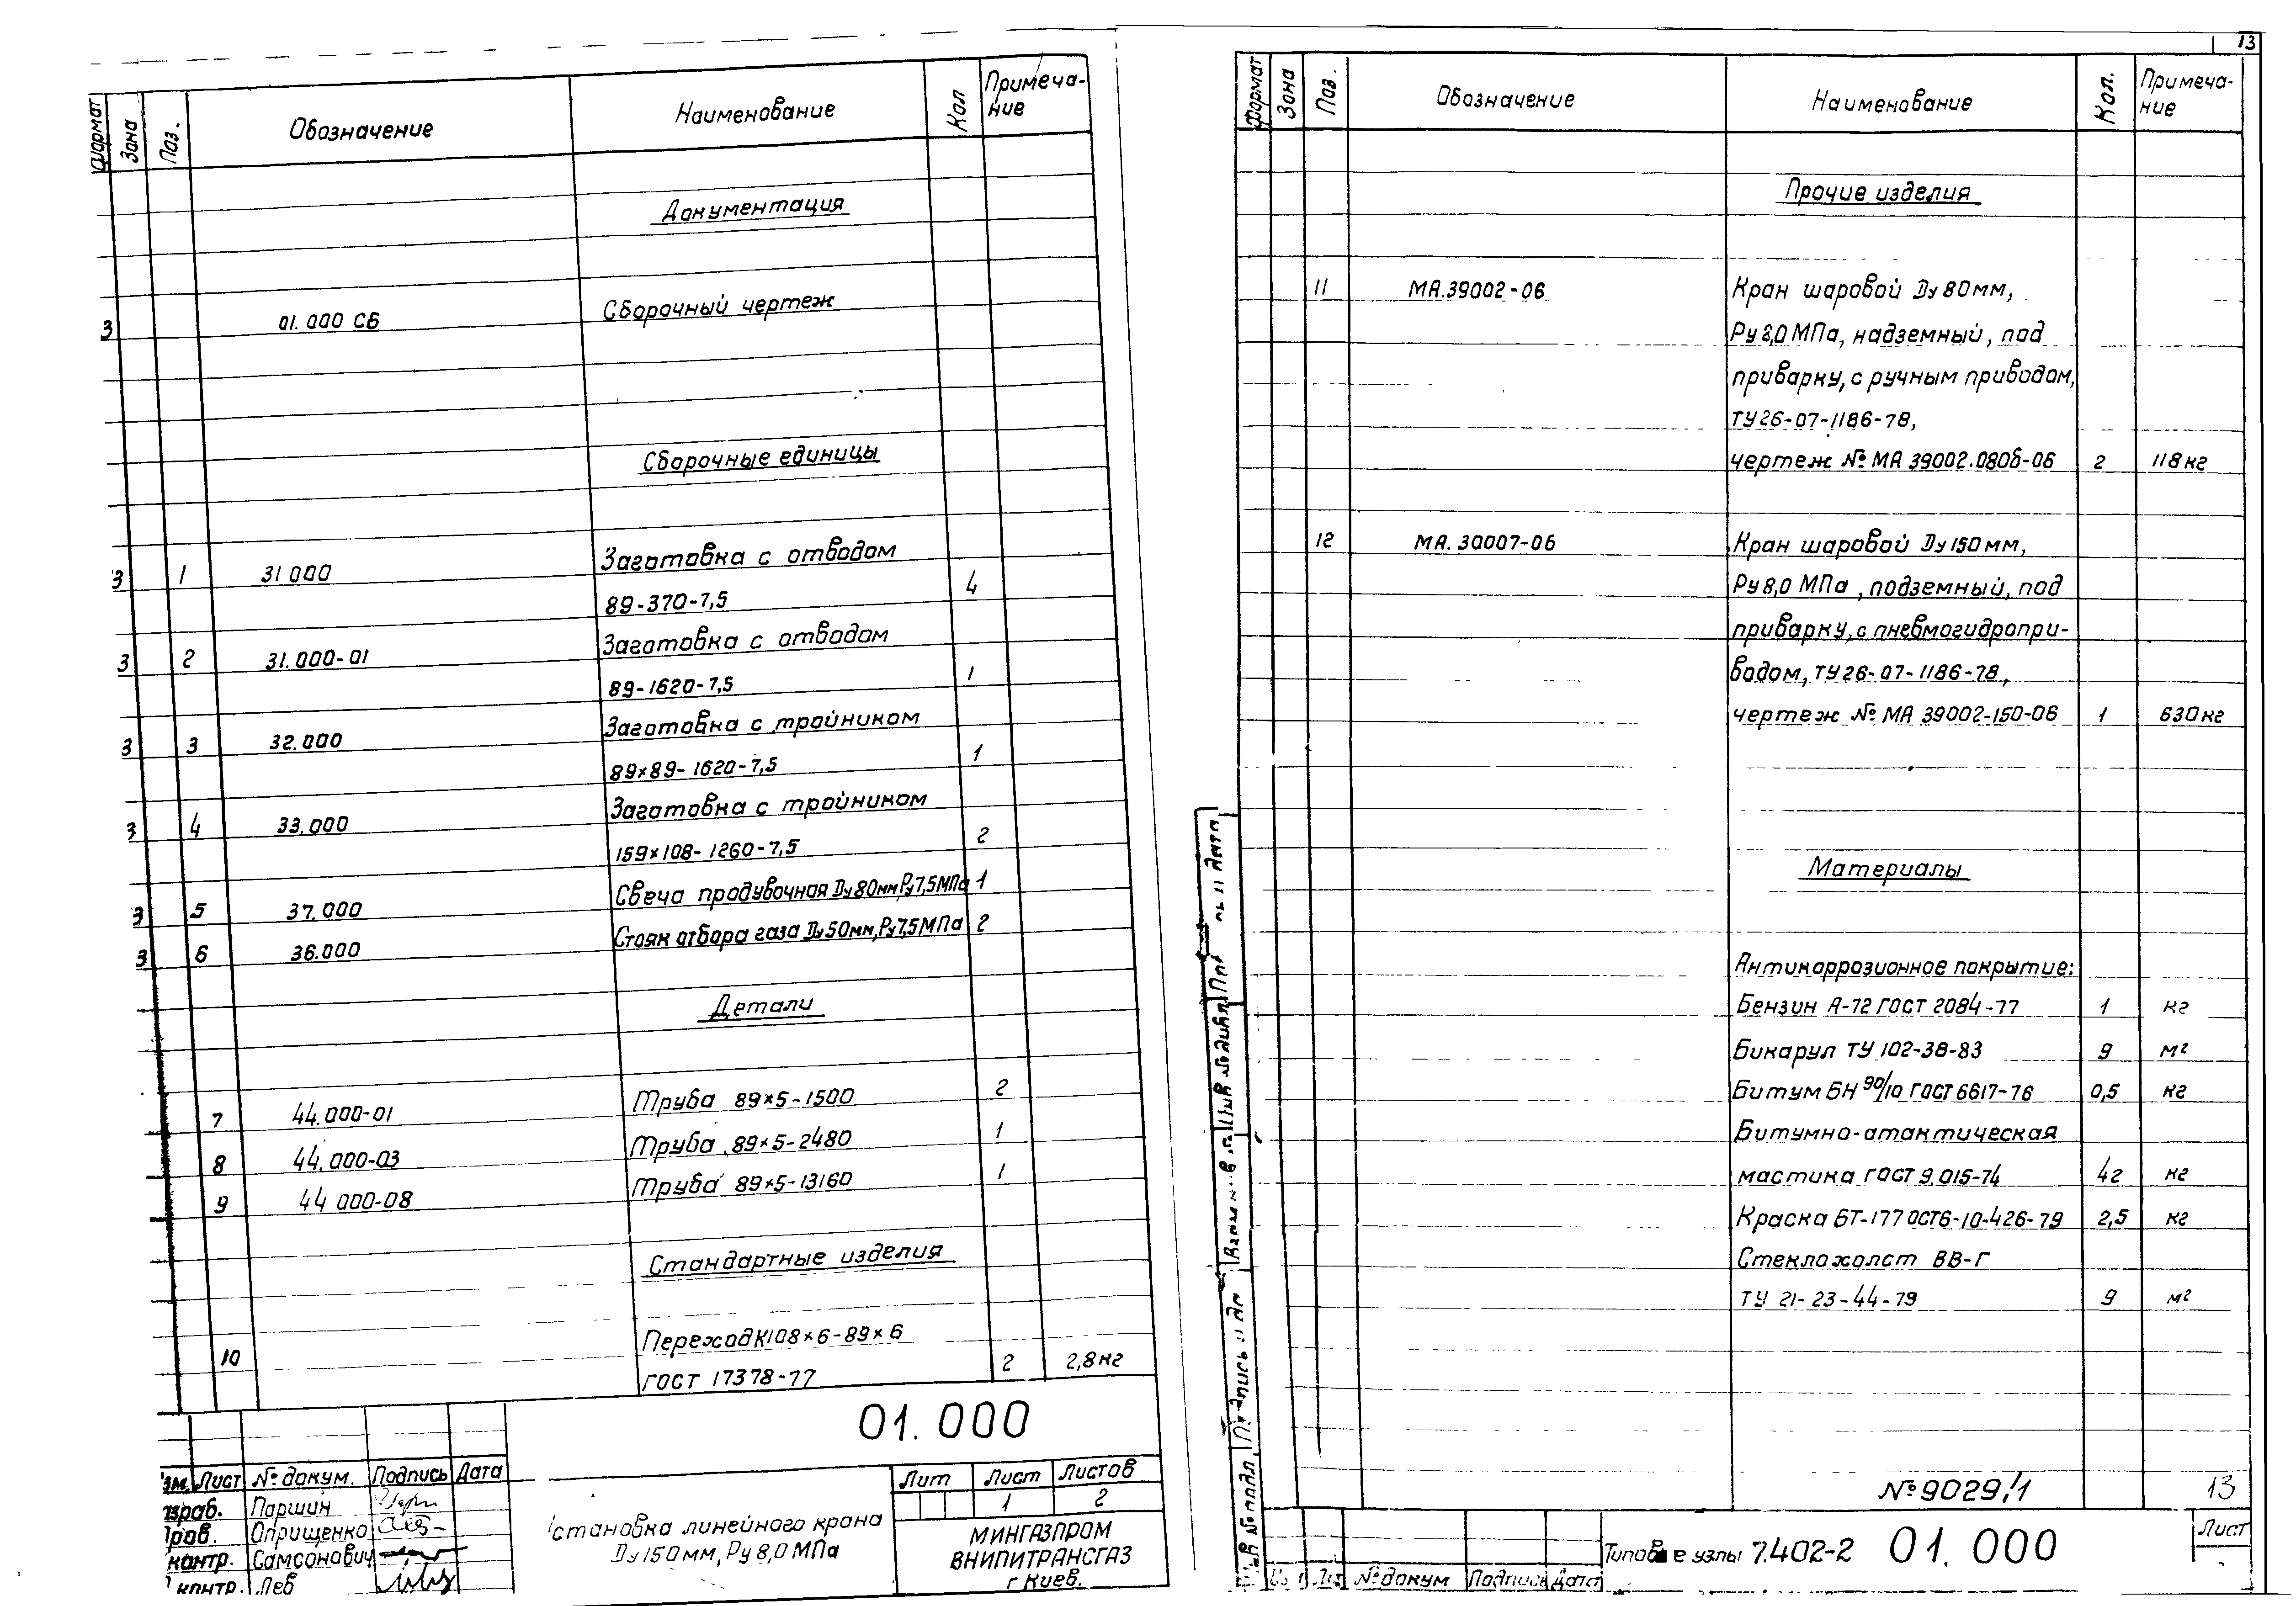 Формат Зона Поз. Обозначение Наименование Кол Примеча-
ние
Документация
3 01.000 СБ Сборочный чертеж
Сборочные единицы
3 1 31 000 Заготовка с отводом
89-370-7,5 4
3 2 31.000-01 Заготовка с отводом
89-1620-7,5 1
3 3 32.000 Заготовка с тройником
89×89-1620-7,5 1
3 4 33.000 Заготовка с тройником
159×108-1260-7,5 2
3 5 37.000 Свеча продувочная Ду 80мм,Ру7,5МПа 1
3 6 36.000 Стояк отбора газа Ду50мм,Ру7,5МПа 2
Детали
7 44.000-01 Труба 89×5-1500 2
8 44.000-03 Труба 89×5-2480 1
9 44 000-08 Труба 89×5-13160 1
Стандартные изделия
10 Переход К108×6-89×6
ГОСТ 17378-77 2 2,8кг
01.000
Изм. Лист № докум. Подпись Дата
Разраб. Паршин
Пров. Оприщенко
контр. Самсонович
контр. Лев
Установка линейного крана
Ду150мм, Ру 8,0 МПа
Лит Лист Листов
1 2
МИНГАЗПРОМ
ВНИПИТРАНСГАЗ
г Киев.
13
Формат Зона Поз. Обозначение Наименование Кол. Примеча-
ние
Прочие изделия
11 МА.39002-06 Кран шаровой Ду 80мм,
Ру 8,0 МПа, надземный, под
приварку, с ручным приводом,
ТУ26-07-1186-78,
чертеж № МА 39002.080б-06 2 118кг
12 МА.30007-06 Кран шаровой Ду 150мм,
Ру8,0 МПа, подземный, под
приварку, с пневмогидропри-
водом, ТУ26-07-1186-78,
чертеж № МА 39002-150-06 1 630кг
Материалы
Антикоррозионное покрытие:
Бензин А-72 ГОСТ 2084-77 1 кг
Бикарул ТУ 102-38-83 9 м²
Битум БН 90/10 ГОСТ 6617-76 0,5 кг
Битумно-атактическая
мастика ГОСТ 9.015-74 42 кг
Краска БТ-177 ОСТ6-10-426-79 2,5 кг
Стеклохолст ВВ-Г
ТУ 21-23-44-79 9 м²
№ 9029/1 13
№ докум Подпись Дата
Типовые узлы 7.402-2 01.000 Лист